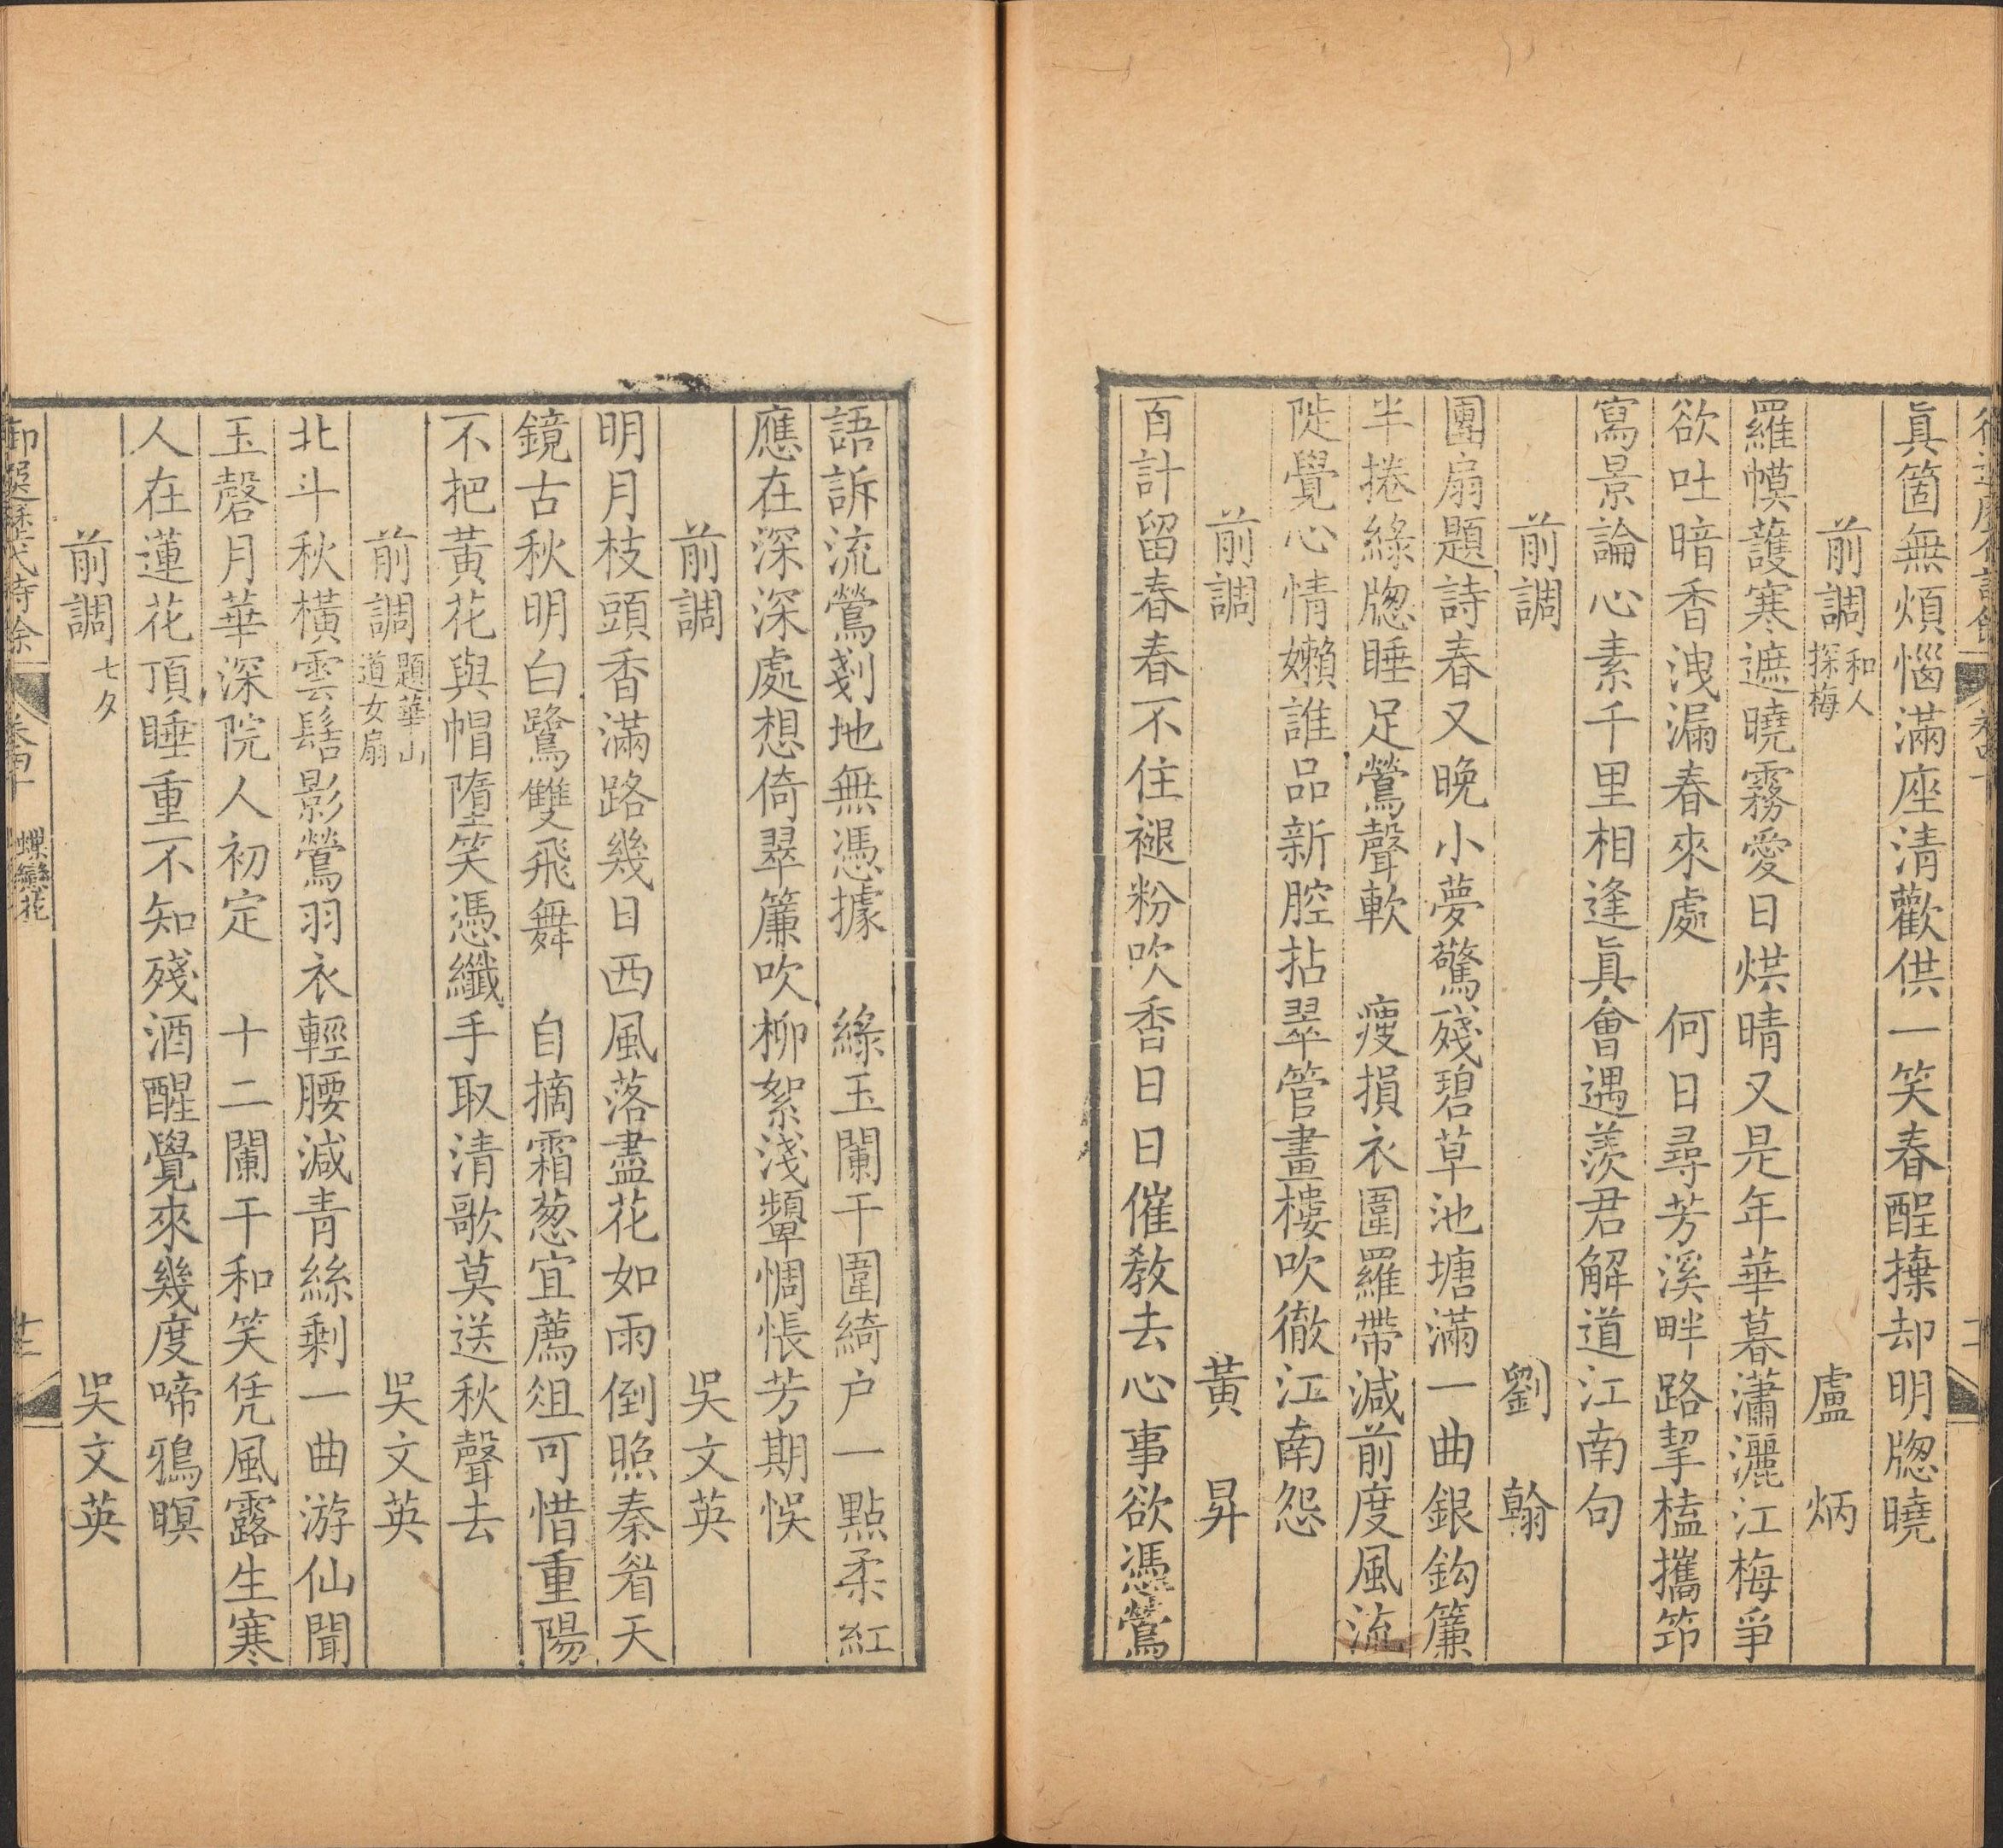 眞箇無煩惱滿座淸歡供一笑春酲擡却明牕曉
前調和人探梅 盧炳
羅幙護寒遮曉霧愛日烘晴又是年華暮瀟灑江梅爭
欲吐暗香洩漏春來處 何日尋芳溪畔路挈榼攜笻
寫景論心素千里相逢眞會遇羨君解道江南句
前調 劉翰
團扇題詩春又晚小夢驚殘碧草池塘滿一曲銀鈎簾
半捲綠牕睡足鶯聲軟 瘦損衣圍羅帶減前度風流
陡覺心情嬾誰品新腔拈翠管畫樓吹徹江南怨
前調 黃昇
百計留春春不住褪粉吹香日日催教去心事欲憑鶯
語訴流鶯剗地無憑據 綠玉闌干圍綺户一點柔紅
應在深深處想倚翠簾吹柳絮淺顰惆悵芳期悞
前調 吳文英
明月枝頭香滿路幾日西風落盡花如雨倒照秦睂天
鏡古秋明白鷺雙飛舞 自摘霜葱宜薦俎可惜重陽
不把黃花與帽墮笑憑纖手取清歌莫送秋聲去
前調題華山道女扇 吳文英
北斗秋橫雲髻影鶯羽衣輕腰減青絲剩一曲游仙聞
玉磬月華深院人初定 十二闌干和笑凭風露生寒
人在蓮花頂睡重不知殘酒醒覺來幾度啼鴉暝
前調七夕 吳文英
御選歷代詩餘 卷四十 蝶戀花 十二